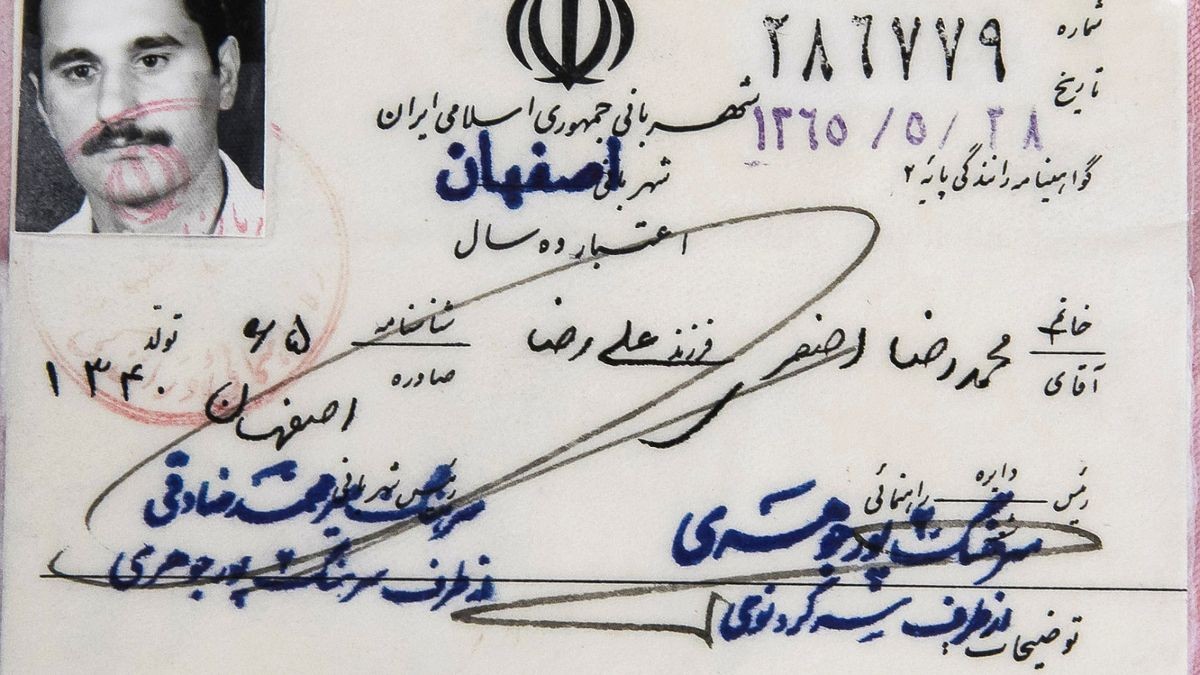 شماره ۲۸۶۷۷۹
تاریخ ۱۳۶۵/۵/۲۸
شهربانی جمهوری اسلامی ایران
شهربانی اصفهان
گواهینامه رانندگی پایه ۲
اعتبار ده سال
خانم
آقای محمدرضا اصغر فرزند علی رضا شناسنامه ۶۵ تولد ۱۳۴۰
صادره اصفهان
رئیس دایره راهنمائی
رئیس شهربانی
سرهنگ پورجوهری
از طرف سرهنگ پورجوهری
از طرف
توضیحات